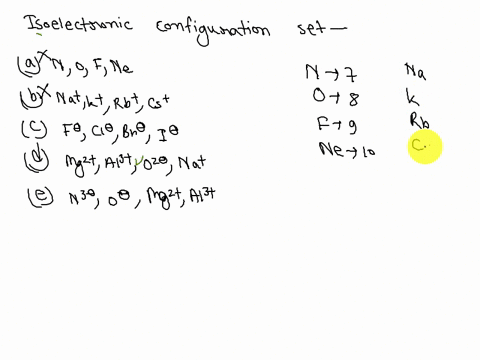 Isoelectronic configuration set—
(a) N, O, F, Ne
(b) Na⁺, K⁺, Rb⁺, Cs⁺
(c) F⊖, Cl⊖, Br⊖, I⊖
(d) Mg²⁺, Al³⁺, O²⊖, Na⁺
(e) N³⊖, O⊖, Mg²⁺, Al³⁺
N → 7
O → 8
F → 9
Ne → 10
Na
K
Rb
C